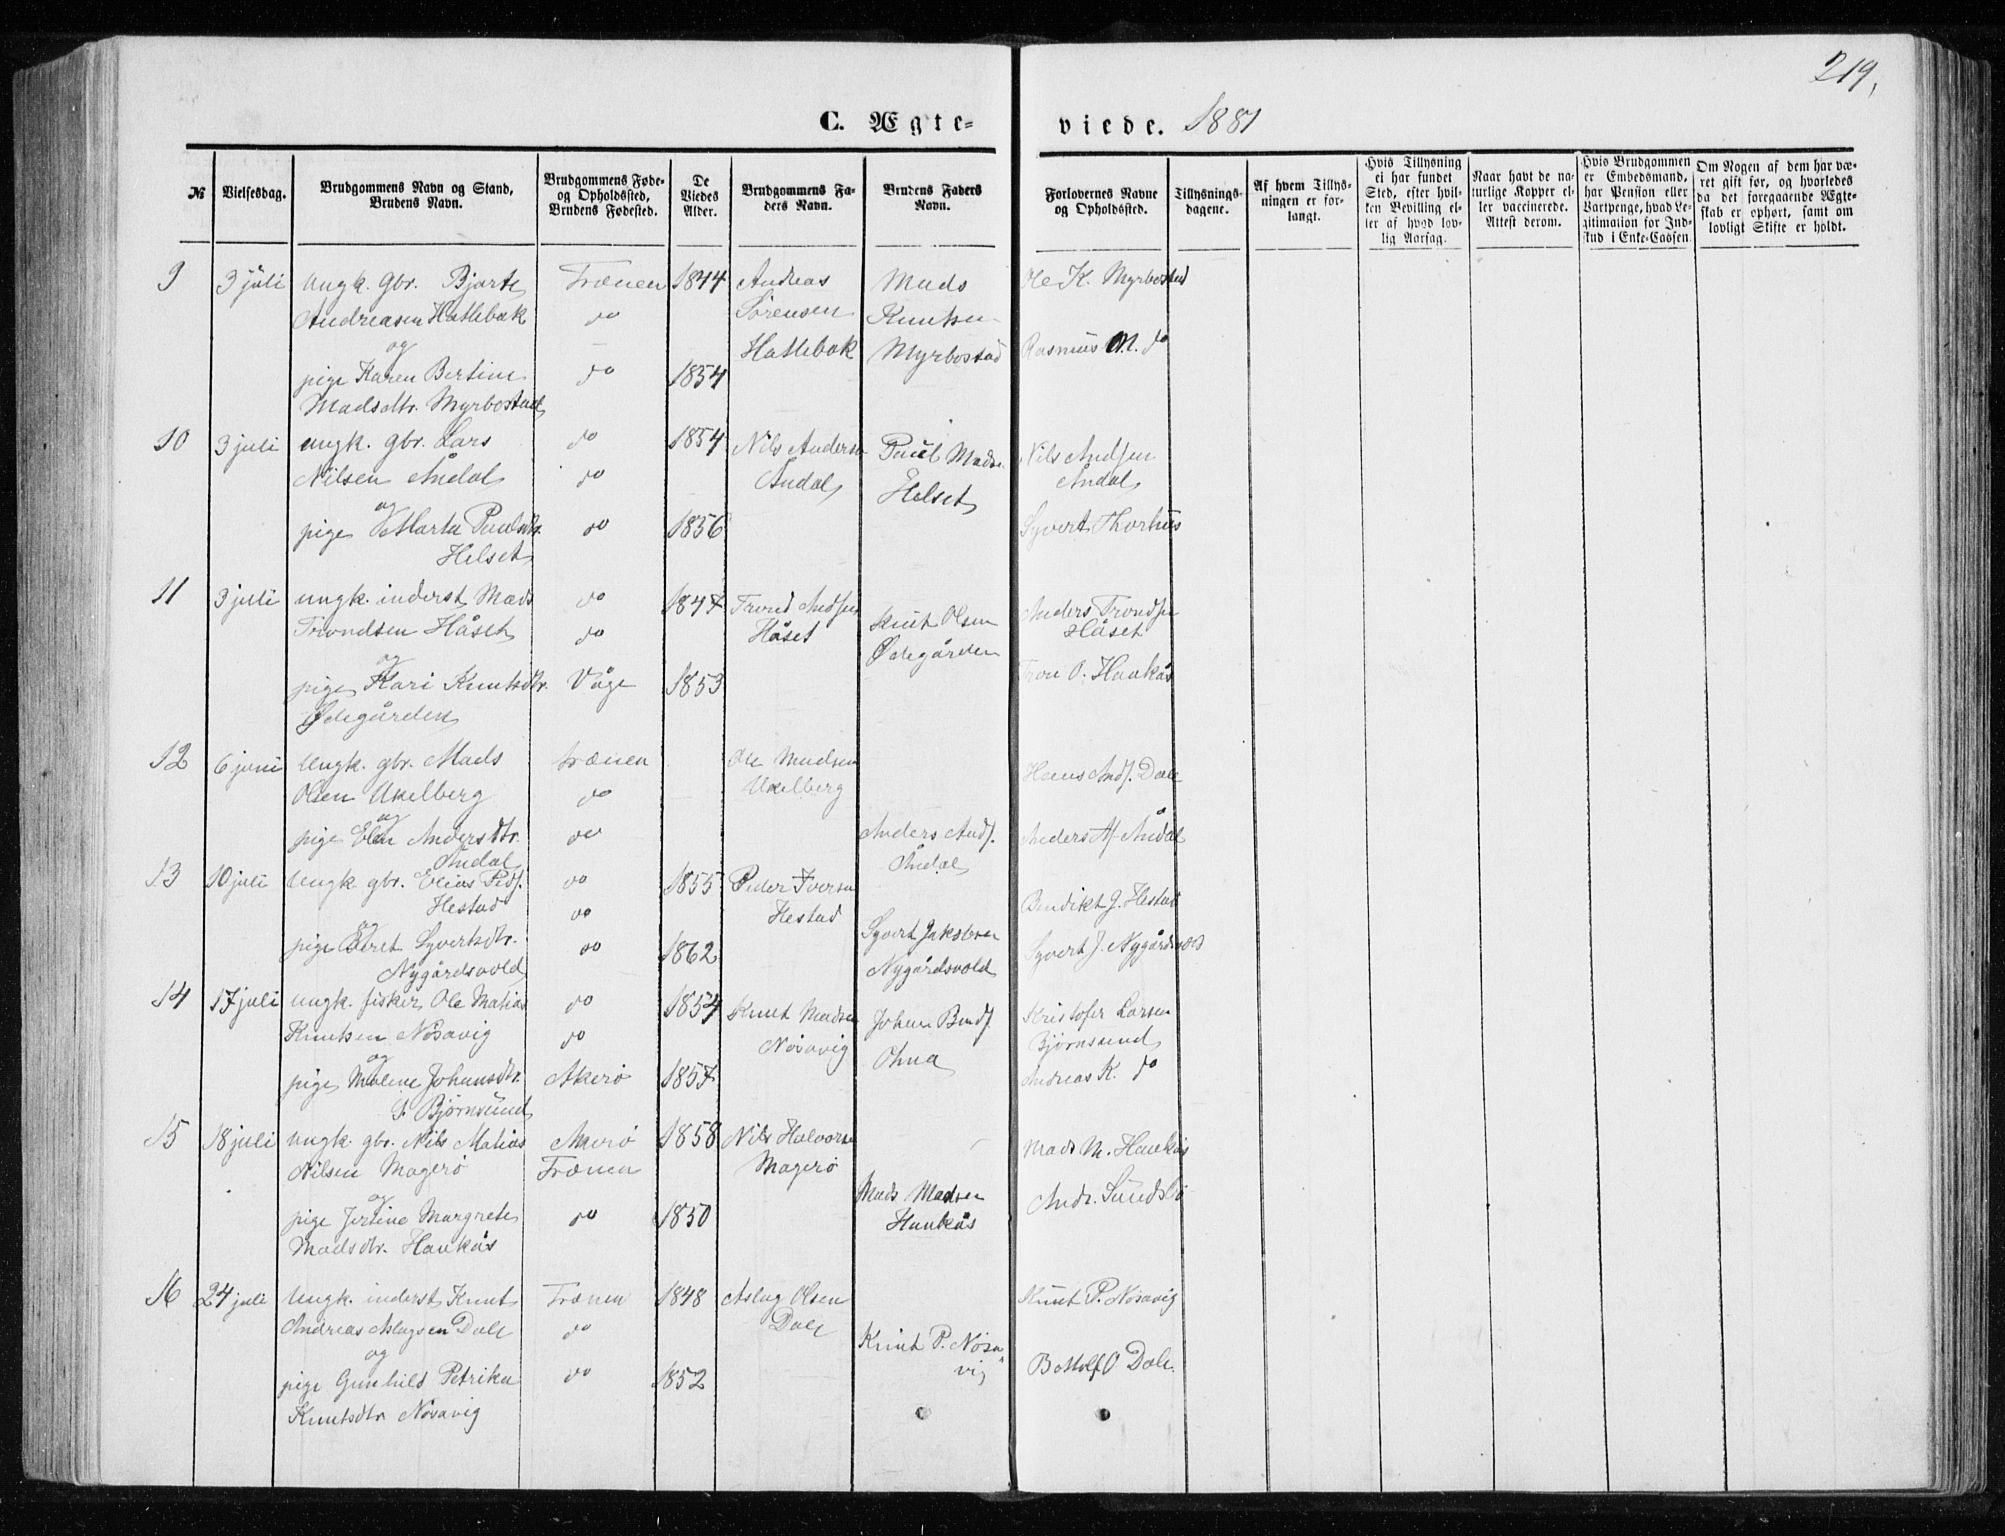 219.
C. Ægte-
viede. 1881
№
Vielsesdag.
Brudgommens Navn og Stand,
Brudens Navn.
Brudgommens Føde-
og Opholdssted,
Brudens Fødested.
De
Viedes
Alder.
Brudgommens Fa-
ders Navn.
Brudens Faders
Navn.
Forlovernes Navne
og Opholdssted.
Tillysnings-
dagene.
Af hvem Tillys-
ningen er for-
langt.
Hvis Tillysning
ei har fundet
Sted, efter hvil-
ken Bevilling el-
ler af hvad lov-
lig Aarsag.
Naar havt de na-
turlige Kopper el-
ler vaccinerede.
Attest derom.
Hvis Brudgommen
er Embedsmand,
har Pension eller
Vartpenge, hvad Le-
gitimation for Ind-
skud i Enke-Cassen.
Om Nogen af dem har væ-
ret gift før, og hvorledes
da det foregaaende Ægte-
skab er ophørt, samt om
lovligt Skifte er holdt.
9
3 juli
Ungk. gbr. Bjarte
Andreasen Hatlebak
og
pige Karen Bertine
Madsdtr. Myrbostad
Frænen
do
do
1844
1854
Andreas
Sørensen
Hatlebak
Mads
Knutsen
Myrbostad
Ole K. Myrbostad
Rasmus M. do
10
3 juli
ungk. gbr. Lars
Nilsen Åndal
og
pige Marta Paulsdtr.
Helset
do
do
do
1854
1856
Nils Andersen
Åndal
Paul Madsen
Helset
Nils Andsen
Åndal
Syvert Thorhus
11
3 juli
ungk. inderst Mads
Trondsen Håset
og
pige Kari Knutsdtr.
Ødegården
do
do
Våge
1847
1853
Trond Andsen
Håset
Knut Olsen
Ødegården
Anders Trondsen
Håset
Tron O. Haukås
12
6 juni
Ungk. gbr. Mads
Olsen Ukelberg
og
pige Elen Andersdtr.
Åndal
Frænen
do
do
Ole Madsen
Ukelberg
Anders Ands.
Åndal
Hans Ands. Dale
Anders A. Åndal
13
10 juli
Ungk. gbr. Elias Peds.
Hestad
og
pige Beret Syvertsdtr.
Nygårdsvold
do
do
do
1855
1862
Peder Iversen
Hestad
Syvert Jakobsen
Nygårdsvold
Bendikt J. Hestad
Syvert J. Nygårdsvold
14
17 juli
ungk. fisker Ole Matias
Knutsen Nøsavig
og
pige Malene Johansdtr.
S. Bjørnsund
do
do
Akerø
1854
1857
Knut Madsen
Nøsavig
Johan Bends.
Ohna
Kristofer Larsen
Bjørnsund
Andreas K. do
15
18 juli
Ungk. gbr. Nils Matias
Nilsen Magerø
og
pige Jertine Margrete
Madsdtr. Haukås
Akerø
Frænen
do
1858
1850
Nils Halvorsen
Magerø
Mads Madsen
Haukås
Mads M. Haukås
Andr. Sundsbø
16
24 juli
Ungk. inderst Knut
Andreas Aslagsen Dale
og
pige Gunhild Petrika
Knutsdtr. Nøsavig
Frænen
do
do
1848
1852
Aslag Olsen
Dale
Knut P. Nøsa-
vig
Knut P. Nøsavig
Bottolf O Dale.